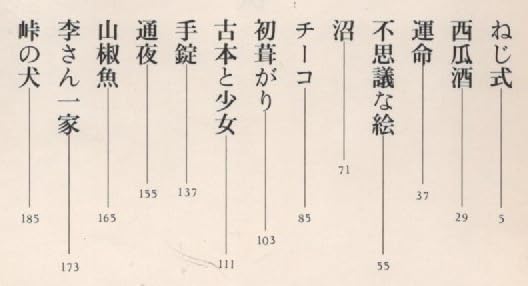 ねじ式 5
西瓜酒 29
運命 37
不思議な絵 55
沼 71
チーコ 85
初茸がり 103
古本と少女 111
手錠 137
通夜 155
山椒魚 165
李さん一家 173
峠の犬 185